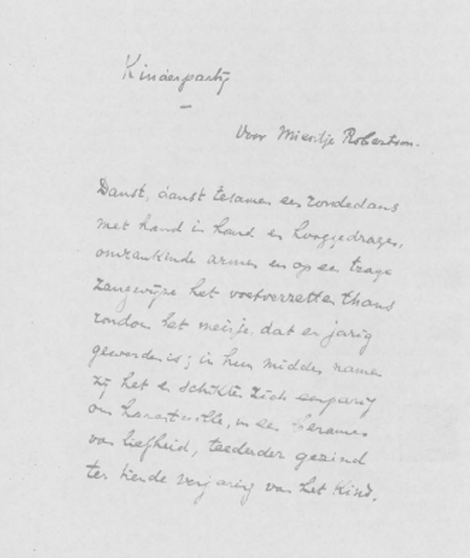 Kinderpartij
—
Voor Miesetje Robertson.
Danst, danst tesamen een rondedans
met hand in hand en hooggedragen,
omrankende armen en op een trage
zangwijze het voetverzetten thans
rondom het meisje, dat er jarig
geworden is; in hun midden namen
zij het en schikten zich eenparig
om haar, in een
van liefheid, teederder gezind
ter tiende verjaring van het Kind.